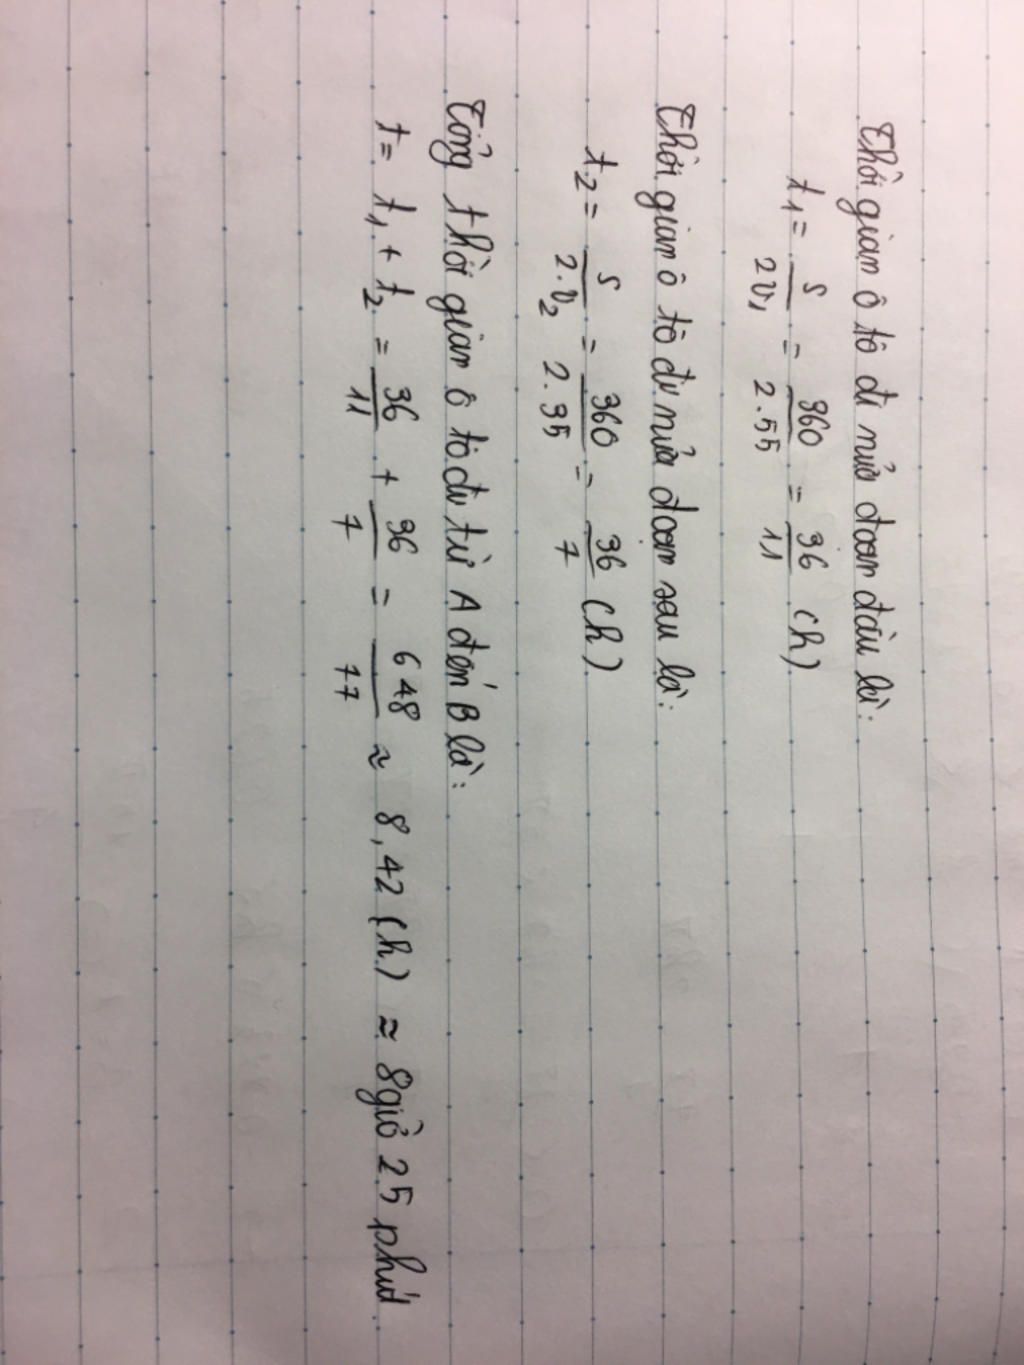 Thời gian ô tô đi nửa đoạn đầu là:
t₁ = s/2v₁ = 360/2.55 = 36/11 (h)
Thời gian ô tô đi nửa đoạn sau là:
t₂ = s/2.v₂ = 360/2.35 = 36/7 (h)
Tổng thời gian ô tô đi từ A đến B là:
t = t₁ + t₂ = 36/11 + 36/7 = 648/77 ≈ 8,42 (h) ≈ 8 giờ 25 phút